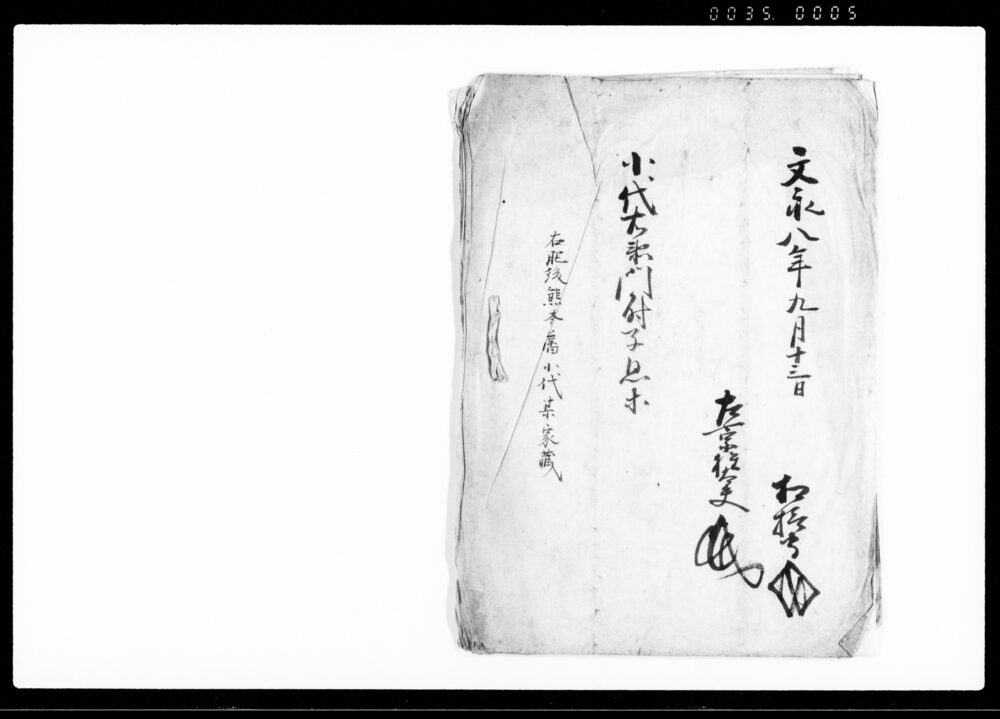 0035. 0005
文永八年九月十三日
相模守
左京権大夫
小代右衛門尉子息等
右肥後熊本藩小代某家蔵